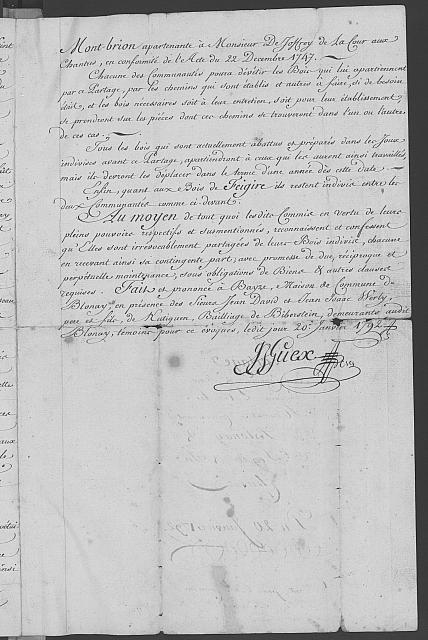 Mont-brion apartenante à Monsieur De Joffrey de La Cour aux
Chantres, en conformité de l'Acte du 22 Decembre 1747.
Chacune des Communautés poura dévêtir les Bois qui lui apartiennent
par ce Partage, par les chemins qui sont établis et autres à faire, si de besoin
était, et les bois nécessaires soit à leur entretien, soit pour leur établissement
se prendront sur les pièces dont ces chemins se trouveront dans l'un ou l'autre
de ces cas.
Tous les bois qui sont actuellement abattus et préparés dans les Joux
indivises avant ce Partage, apartiendront à ceux qui les auront ainsi travaillés
mais ils devront les déplacer dans le terme d'une année dès cette date.
Enfin, quant aux Bois de Feigire ils restent indivis entre les
deux Communautés comme ci-devant.
Au moyen de tout quoi lesdits Commis en vertu de leurs
pleins pouvoirs respectifs et susmentionnés, reconnaissent et confessent
qu'Elles sont irrévocablement partagées de leurs Bois indivis, chacune
en recevant ainsi sa contingente part; avec promesse de due, réciproque et
perpétuelle maintenance, sous obligations de Biens & autres clauses
requises. Fait et prononcé à Bayze, Maison de Commune de
Blonay, en présence des Sieurs Jean David et Jean Isaac
père et fils, de Rutiguen, Bailliage de Biberstein, demeurants audit
Blonay, témoins pour ce évoqués, ledit jour 20e Janvier 1792
Guex